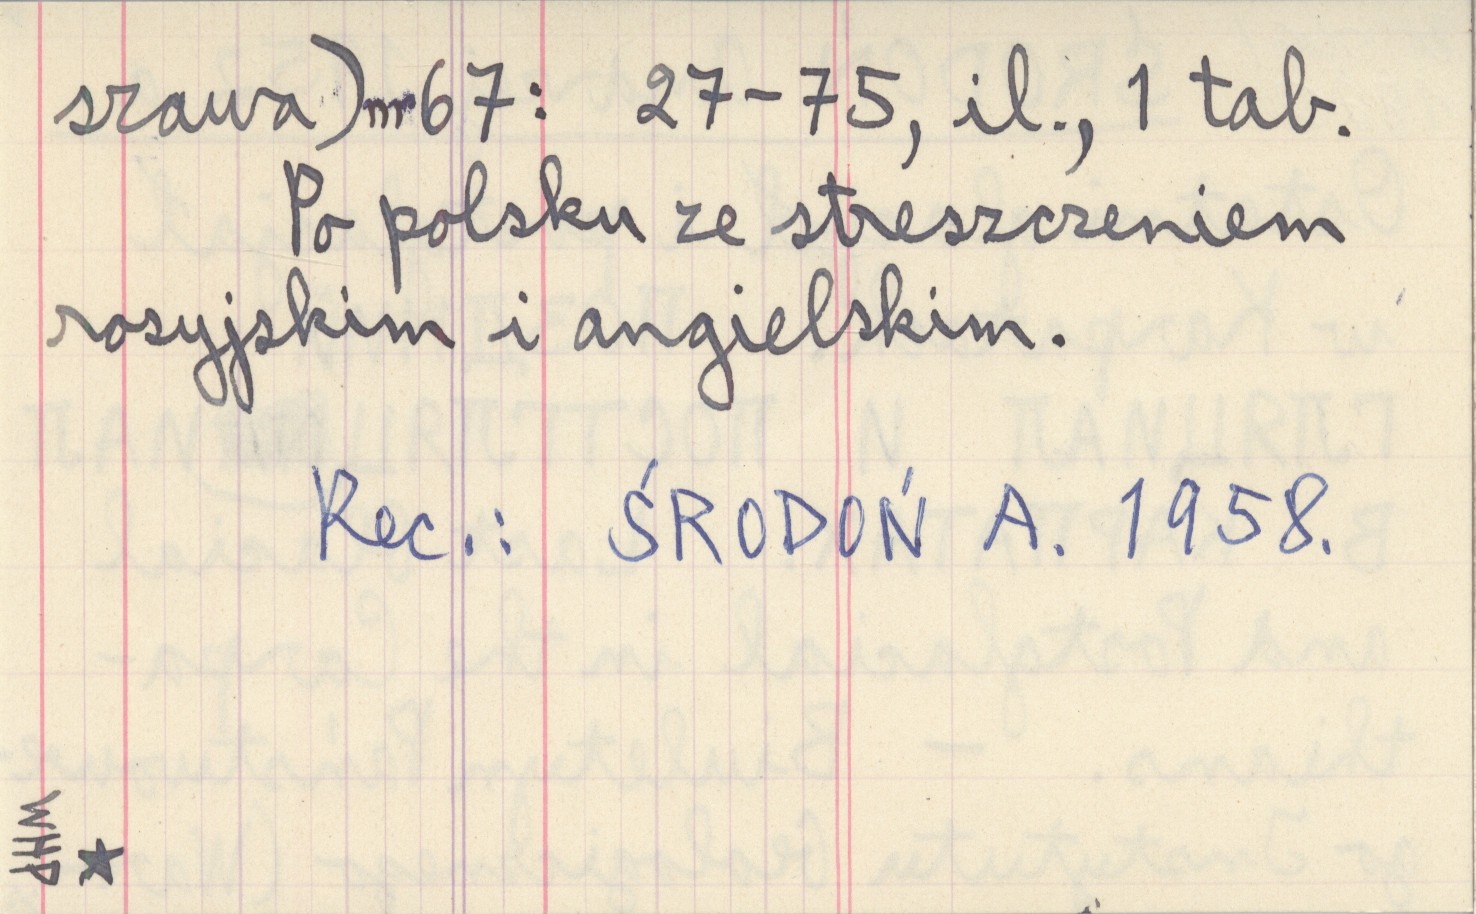 szawa) nr 67: 27-75, il., 1 tab.
Po polsku ze streszczeniem
rosyjskim i angielskim.
Rec.: ŚRODOŃ A. 1958.
WHP